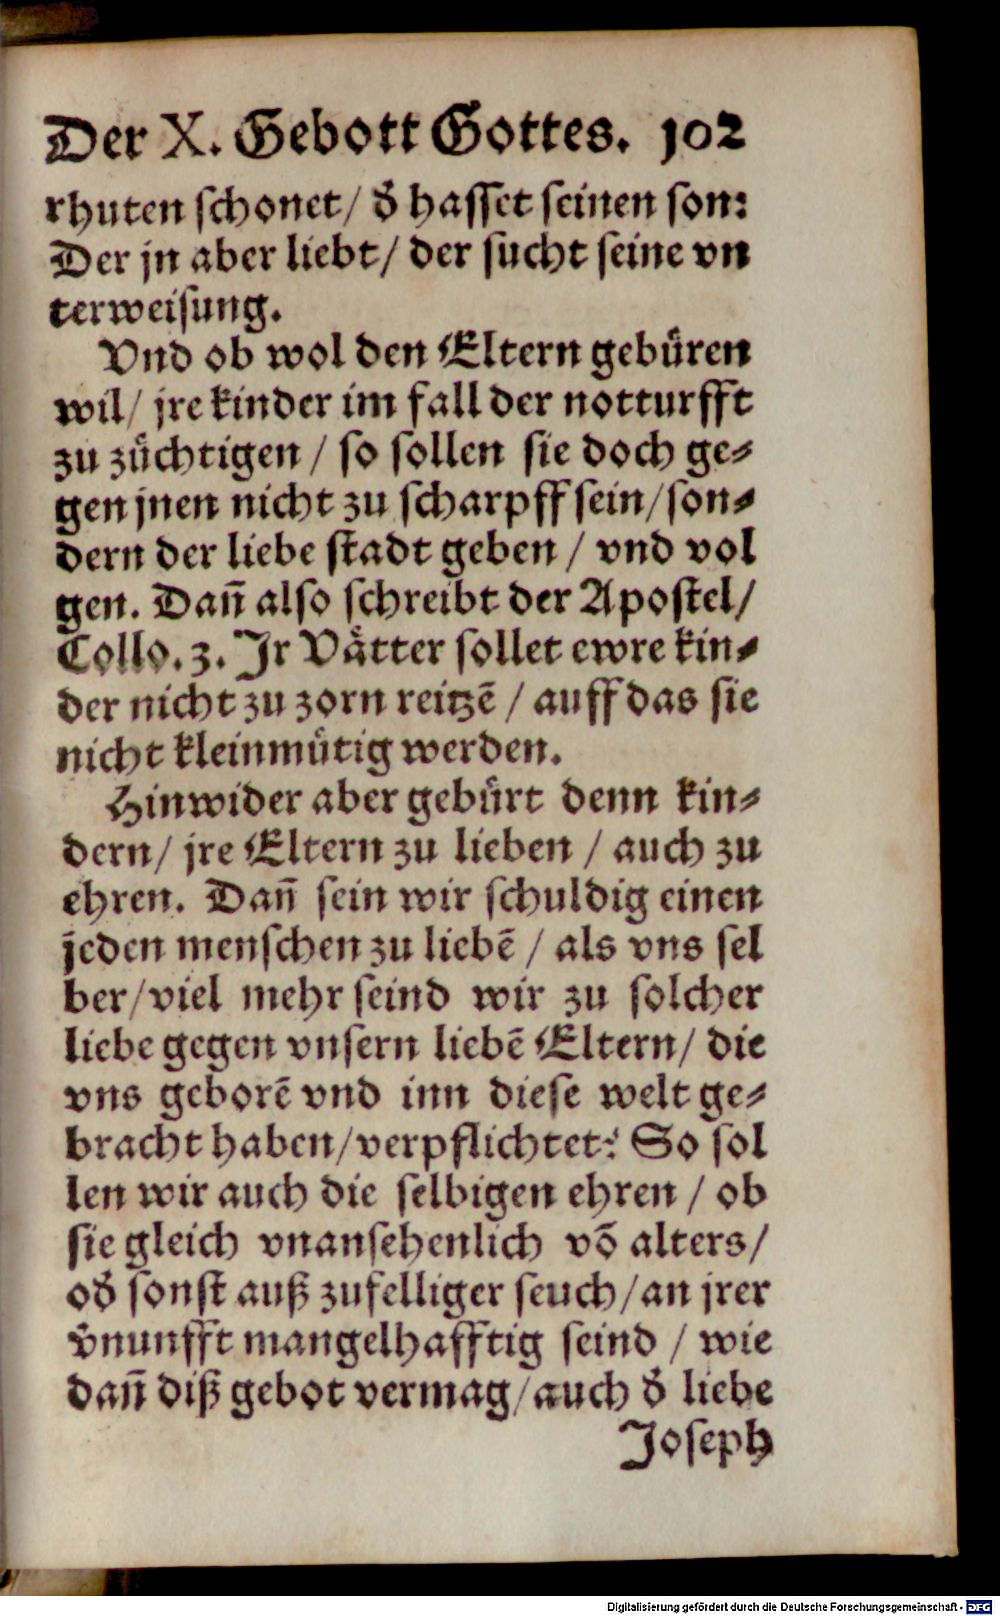 Der X. Gebott Gottes. 102
rhuten schonet/ d̕ hasset seinen son:
Der jn aber liebt/ der sucht seine vn
terweisung.
Vnd ob wol den Eltern gebüren
wil/ jre kinder im fall der notturfft
zu züchtigen / so sollen sie doch ge⸗
gen jnen nicht zu scharpff sein/ son⸗
dern der liebe stadt geben / vnd vol
gen. Dañ also schreibt der Apostel/
Collo. 3. Jr Vätter sollet ewre kin⸗
der nicht zu zorn reitzē / auff das sie
nicht kleinmütig werden.
Hinwider aber gebürt denn kin⸗
dern/ jre Eltern zu lieben / auch zu
ehren. Dañ sein wir schuldig einen
jeden menschen zu liebē / als vns sel
ber/ viel mehr seind wir zu solcher
liebe gegen vnsern liebē Eltern/ die
vns geborē vnd inn diese welt ge⸗
bracht haben/ verpflichtet: So sol
len wir auch die selbigen ehren / ob
sie gleich vnansehenlich vō alters/
od̕ sonst auß zufelliger seuch/ an jrer
v̕nunfft mangelhafftig seind / wie
dañ diß gebot vermag/ auch d̕ liebe
Joseph
Digitalisierung gefördert durch die Deutsche Forschungsgemeinschaft - DFG